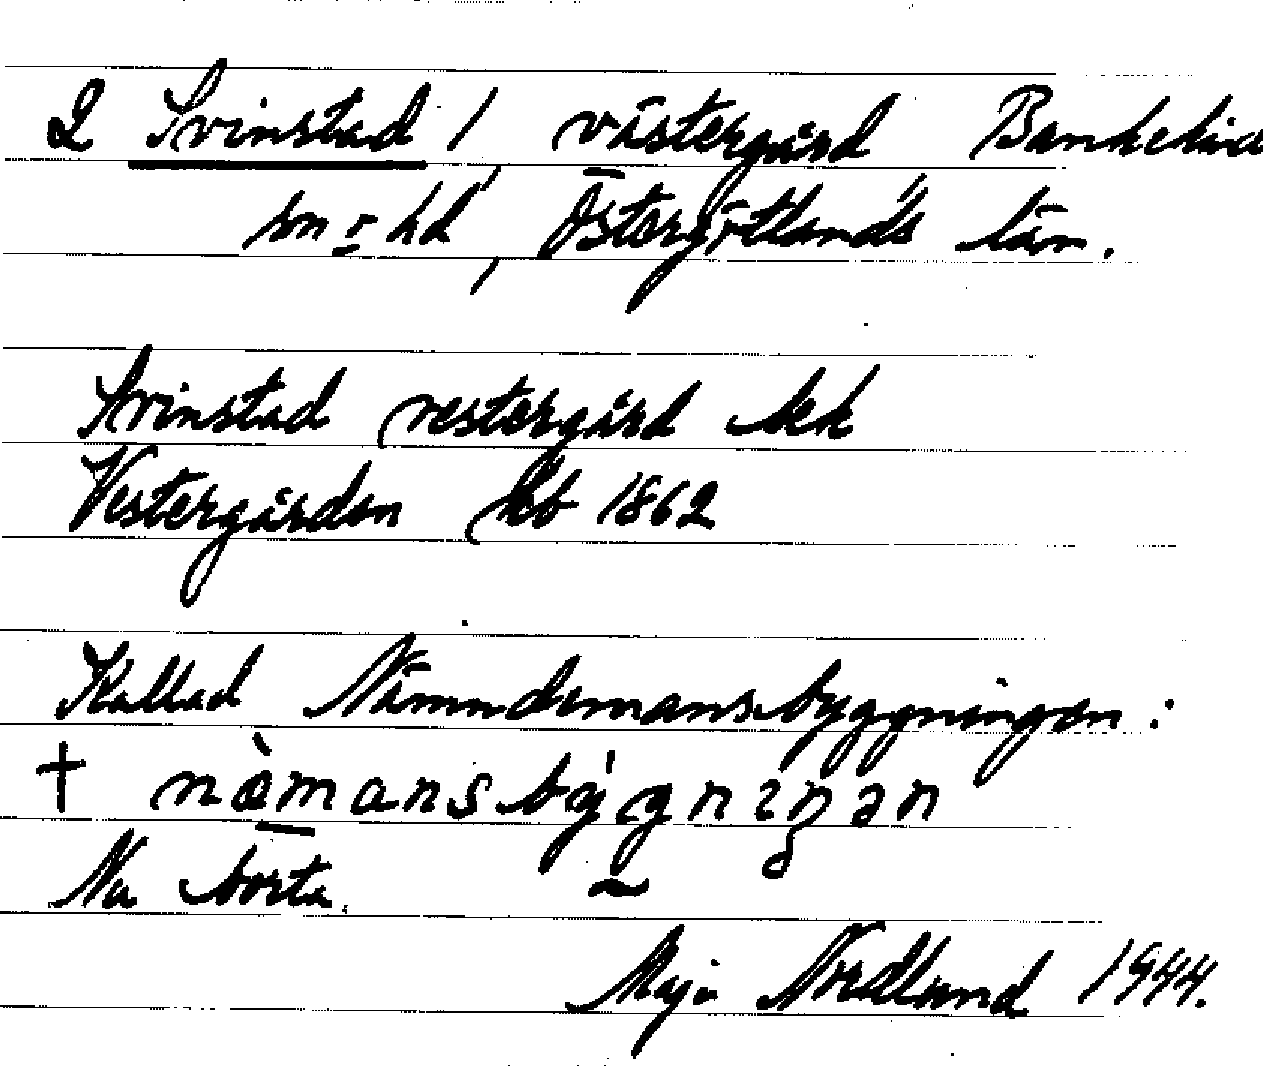 2 Svinstad / västergård Bankekind
sn o hd, Östergötlands län.
Svinstad vestergård
Vestergården 1862
Kallad Nämndemansbyggningen:
† nämansbygningən
Nu borta.
Maja Nordlund 1944.